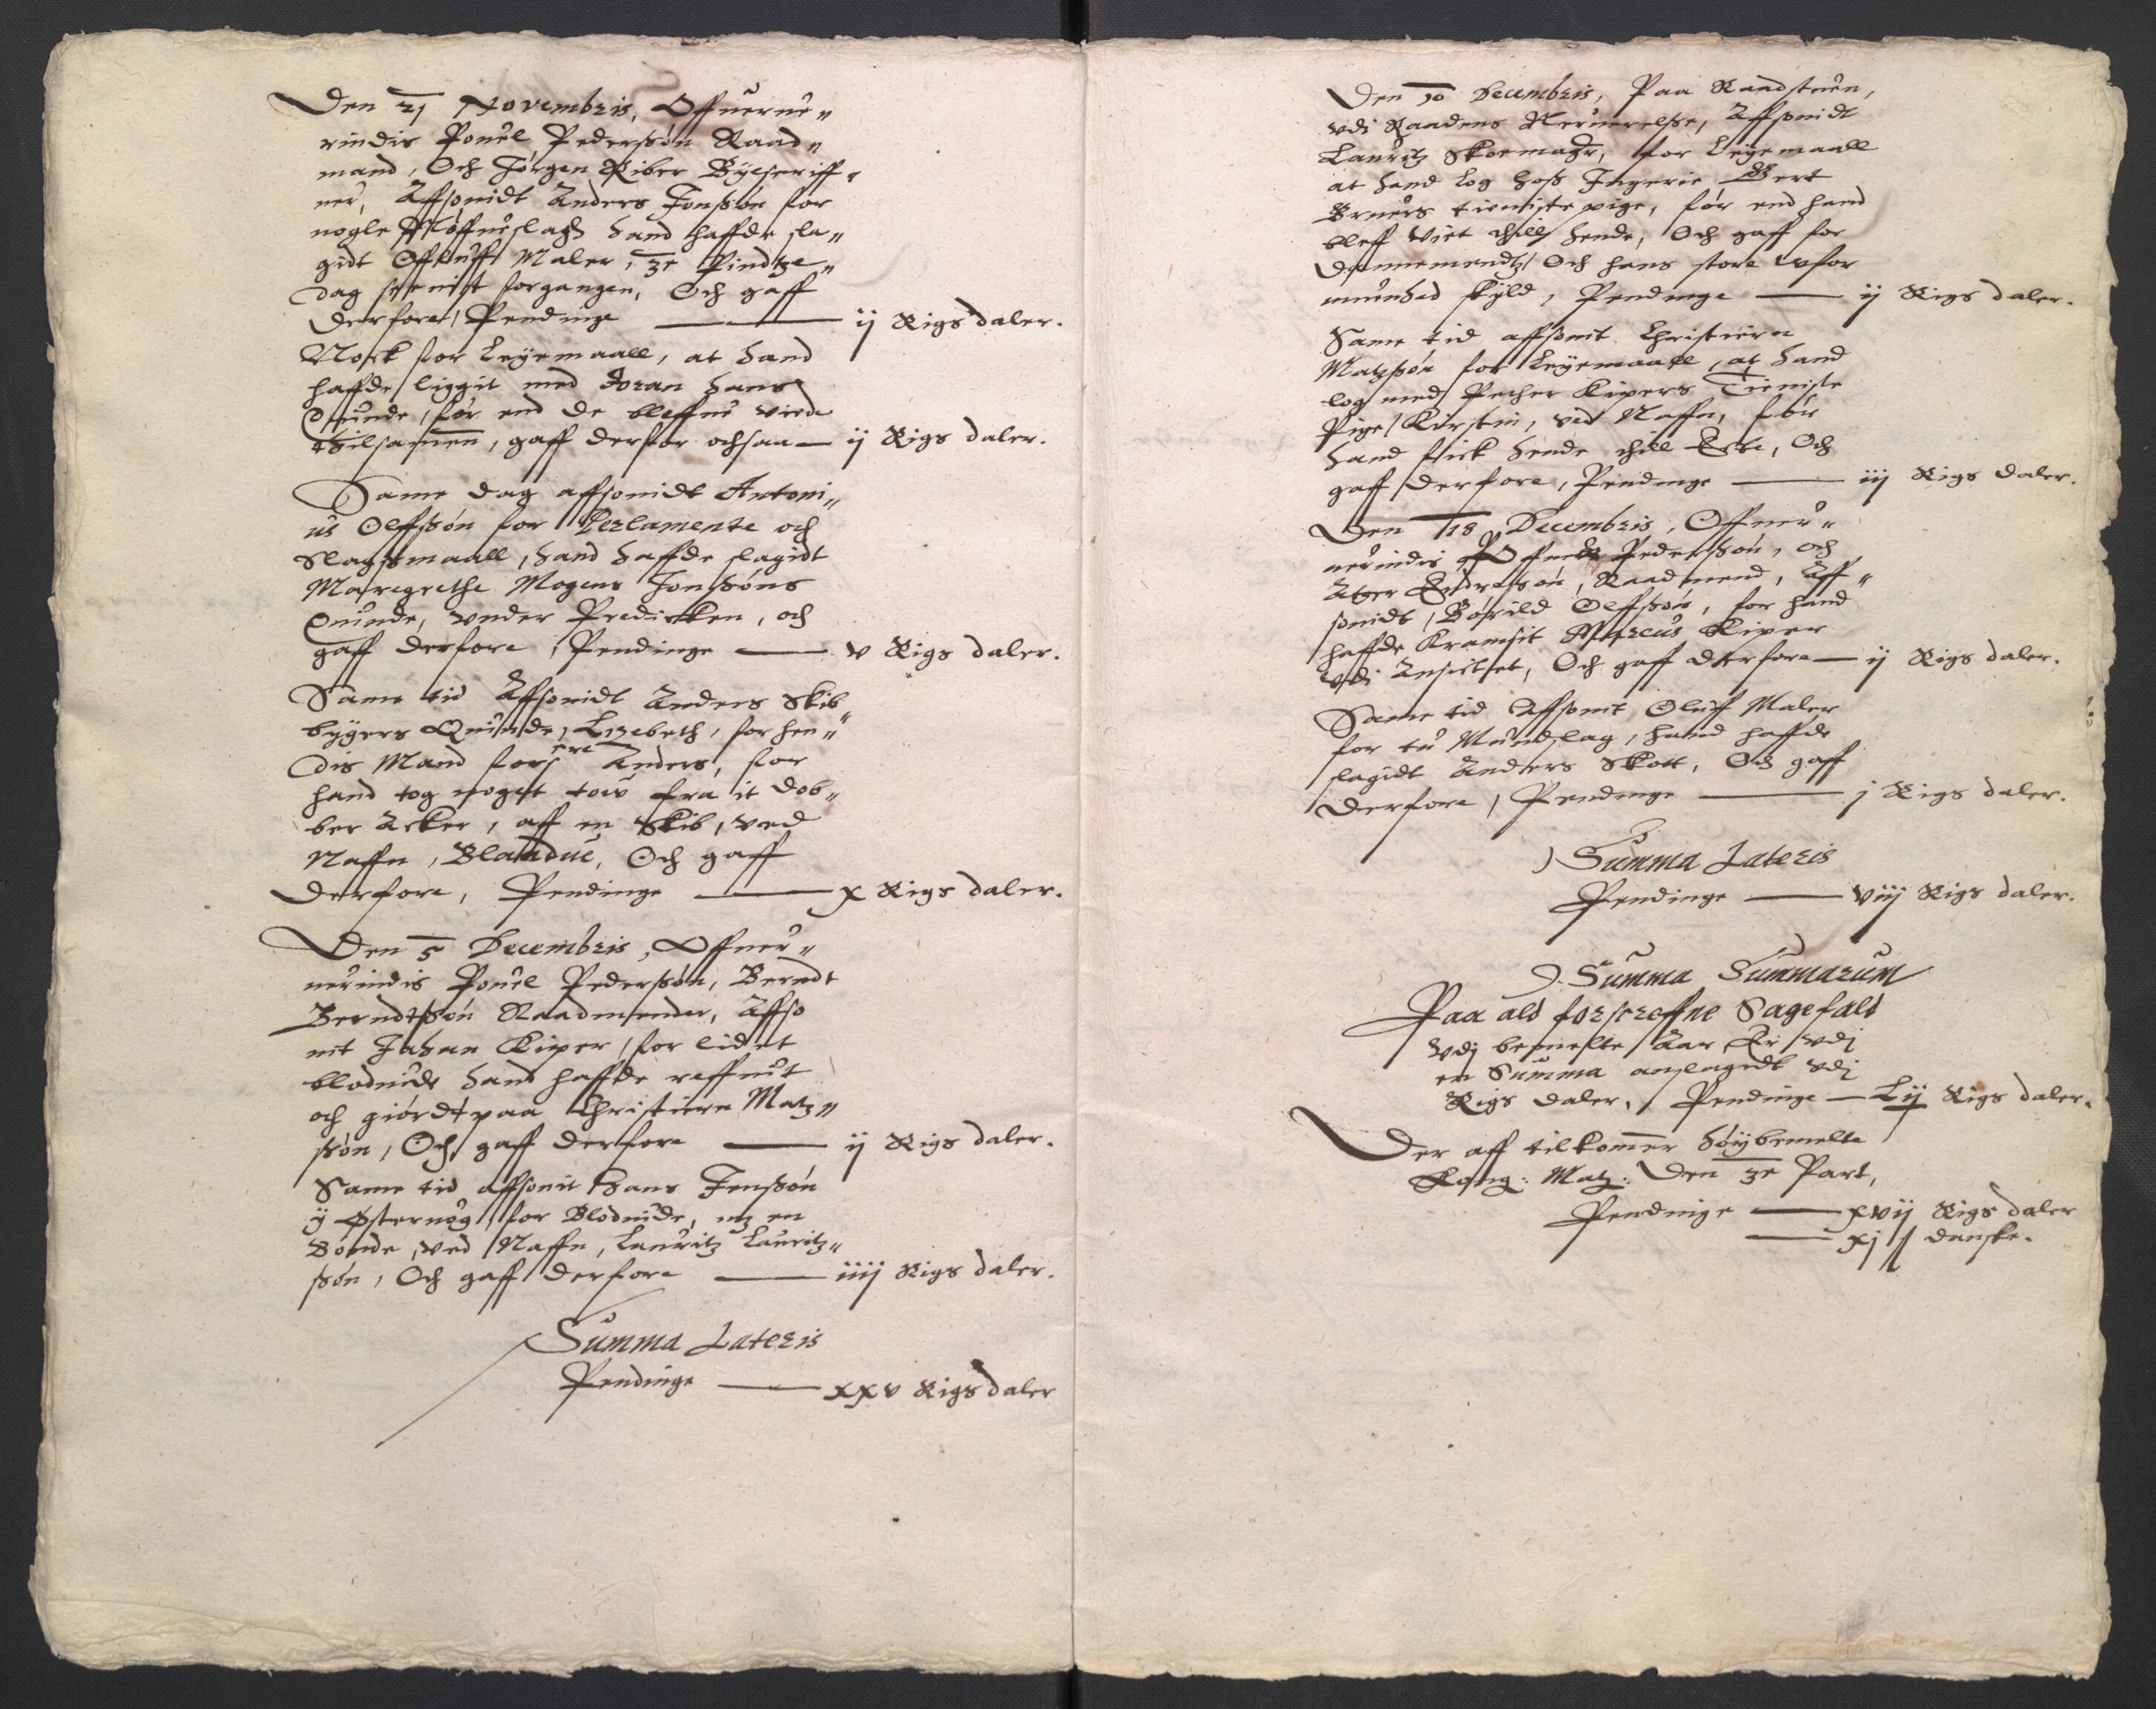 Den 21 Novembris, Offuerue„
rindis Pouel Pederssøn Raad„
mand, Och Jørgen Riber Byescriff„
uer, Affsonidt Anders Jonssøn for
nogle Næffueslagh hand haffde sla„
gidt Oluff Maler, 3e Pindtze„
dag sienist forgangen, Och gaff
derfore, Pendinge —— ij Rigs daler.
Nock for Leyemaall, at hand
haffde liggit med Joran hans
Quinde, før end de bleffue viede
thilsamen, gaff derfor ochsaa — ij Rigs daler.
Same dag affsonidt Antoni„
us Olffssøn for Perlamente och
Slagsmaall, hand haffde slagidt
Maregrethe Mogens Jonssøns
Quinde, vnder Predicken, och
gaff derfore, Pendinge —— v Rigs daler.
Same tid Affsonidt Anders Skib„
bygers Quinde, Lizebeth, for hen„
dis Mand forscre Anders, for
hand tog noget tow fra it dob„
ber Acker, aff en Skib, ved
Naffn, Blandue, Och gaff
derfore, Pendinge —— x Rigs daler.
Den 5 Decembris, Offuer„
uerindis Pouel Pederssøn, Berndt
Berndtssøn Raadmender, Affso
nit Johan Kiper, for lidet
bloduide hand haffde reffuit
och giordt paa Christiern Matz„
søn, Och gaff derfore —— ij Rigs daler.
Same tid affsonit Hans Jenssøn
ij Østernøg, for Blodvide, mz en
Bonde, ved Naffn, Lauritz Lauritz„
søn, Och gaff derfore —— iiij Rigs daler.
Summa Lateris
Pendinge —— xxv Rigs daler
Den 10 Decembris, Paa Raadstuen,
vdi Raadens Neruerelse, Affsonidt
Lauritz Skoemager, for Leyemaall
at hand log hoss Ingerie Gert
Bruers tieniste pige, før end hand
bleff viet thill hende, Och gaff for
Dannemendtz Och hans store wfor
muenhed skyld, Pendinge —— ij Rigs daler.
Same tid affsonit Christiern
Matzsøn for Leyemaall, at hand
log med Pether Kipers Tieniste
Pige Kirstin, ved Naffn, før
hand fick hende thill Ecte, Och
gaff derfore, Pendinge —— iij Rigs daler.
Den 18 Decembris, Offuer„
uerindis Pouel Pederssøn, och
Atzer Andrissøn, Raadmend, Aff„
sonidt, Boruild Olffssøn, for hand
haffde kramsit Marcus Kiper
vdi Ansictet, Och gaff derfore — ij Rigs daler.
Same tid Affsonit Oluff Maler
for tu Mundslag, hand haffde
slagidt Anders Skott, Och gaff
derfore, Pendinge —— j Rigs daler.
Summa Lateris
Pendinge —— viij Rigs daler.
Summa Summarum
Paa ald forscreffne Sagefald
vdj bemelte Aar Er vdj
en Summa anslagedt vdj
Rigs daler, Pendinge — Lij Rigs daler.
Der aff tilkomer Høybemelte
Kong: Matz: Den 3e Part,
Pendinge —— xvij Rigs daler
—— xj ß danske.